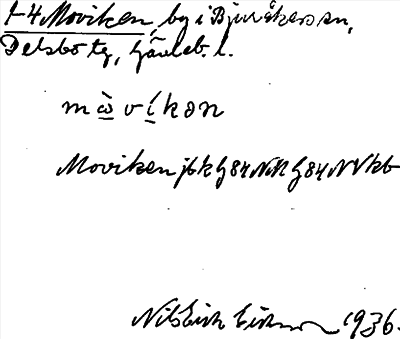 1-4 Moviken, by i Bjuråkers sn,
Delsbo tg, Gävleb. l.
mὼvíkən
Moviken jbk G84NN G84NVkb
Nils Erik 1936.